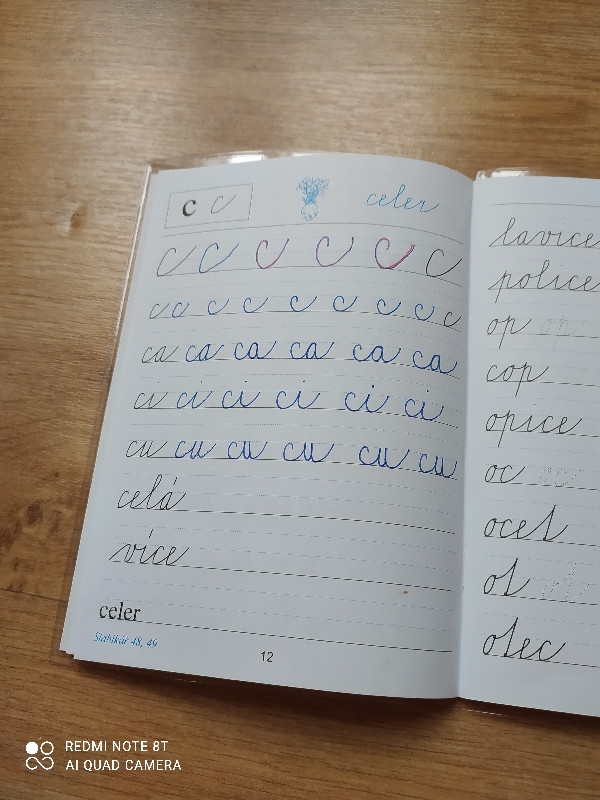 c c celer
c c c c c c
c c c c c c c c c
ca ca ca ca ca ca
ci ci ci ci ci ci
cu cu cu cu cu cu
celá
více
celer
12
lavice
police
op op
cop
opice
oc oc
ocet
ot ot
otec
REDMI NOTE 8T
AI QUAD CAMERA